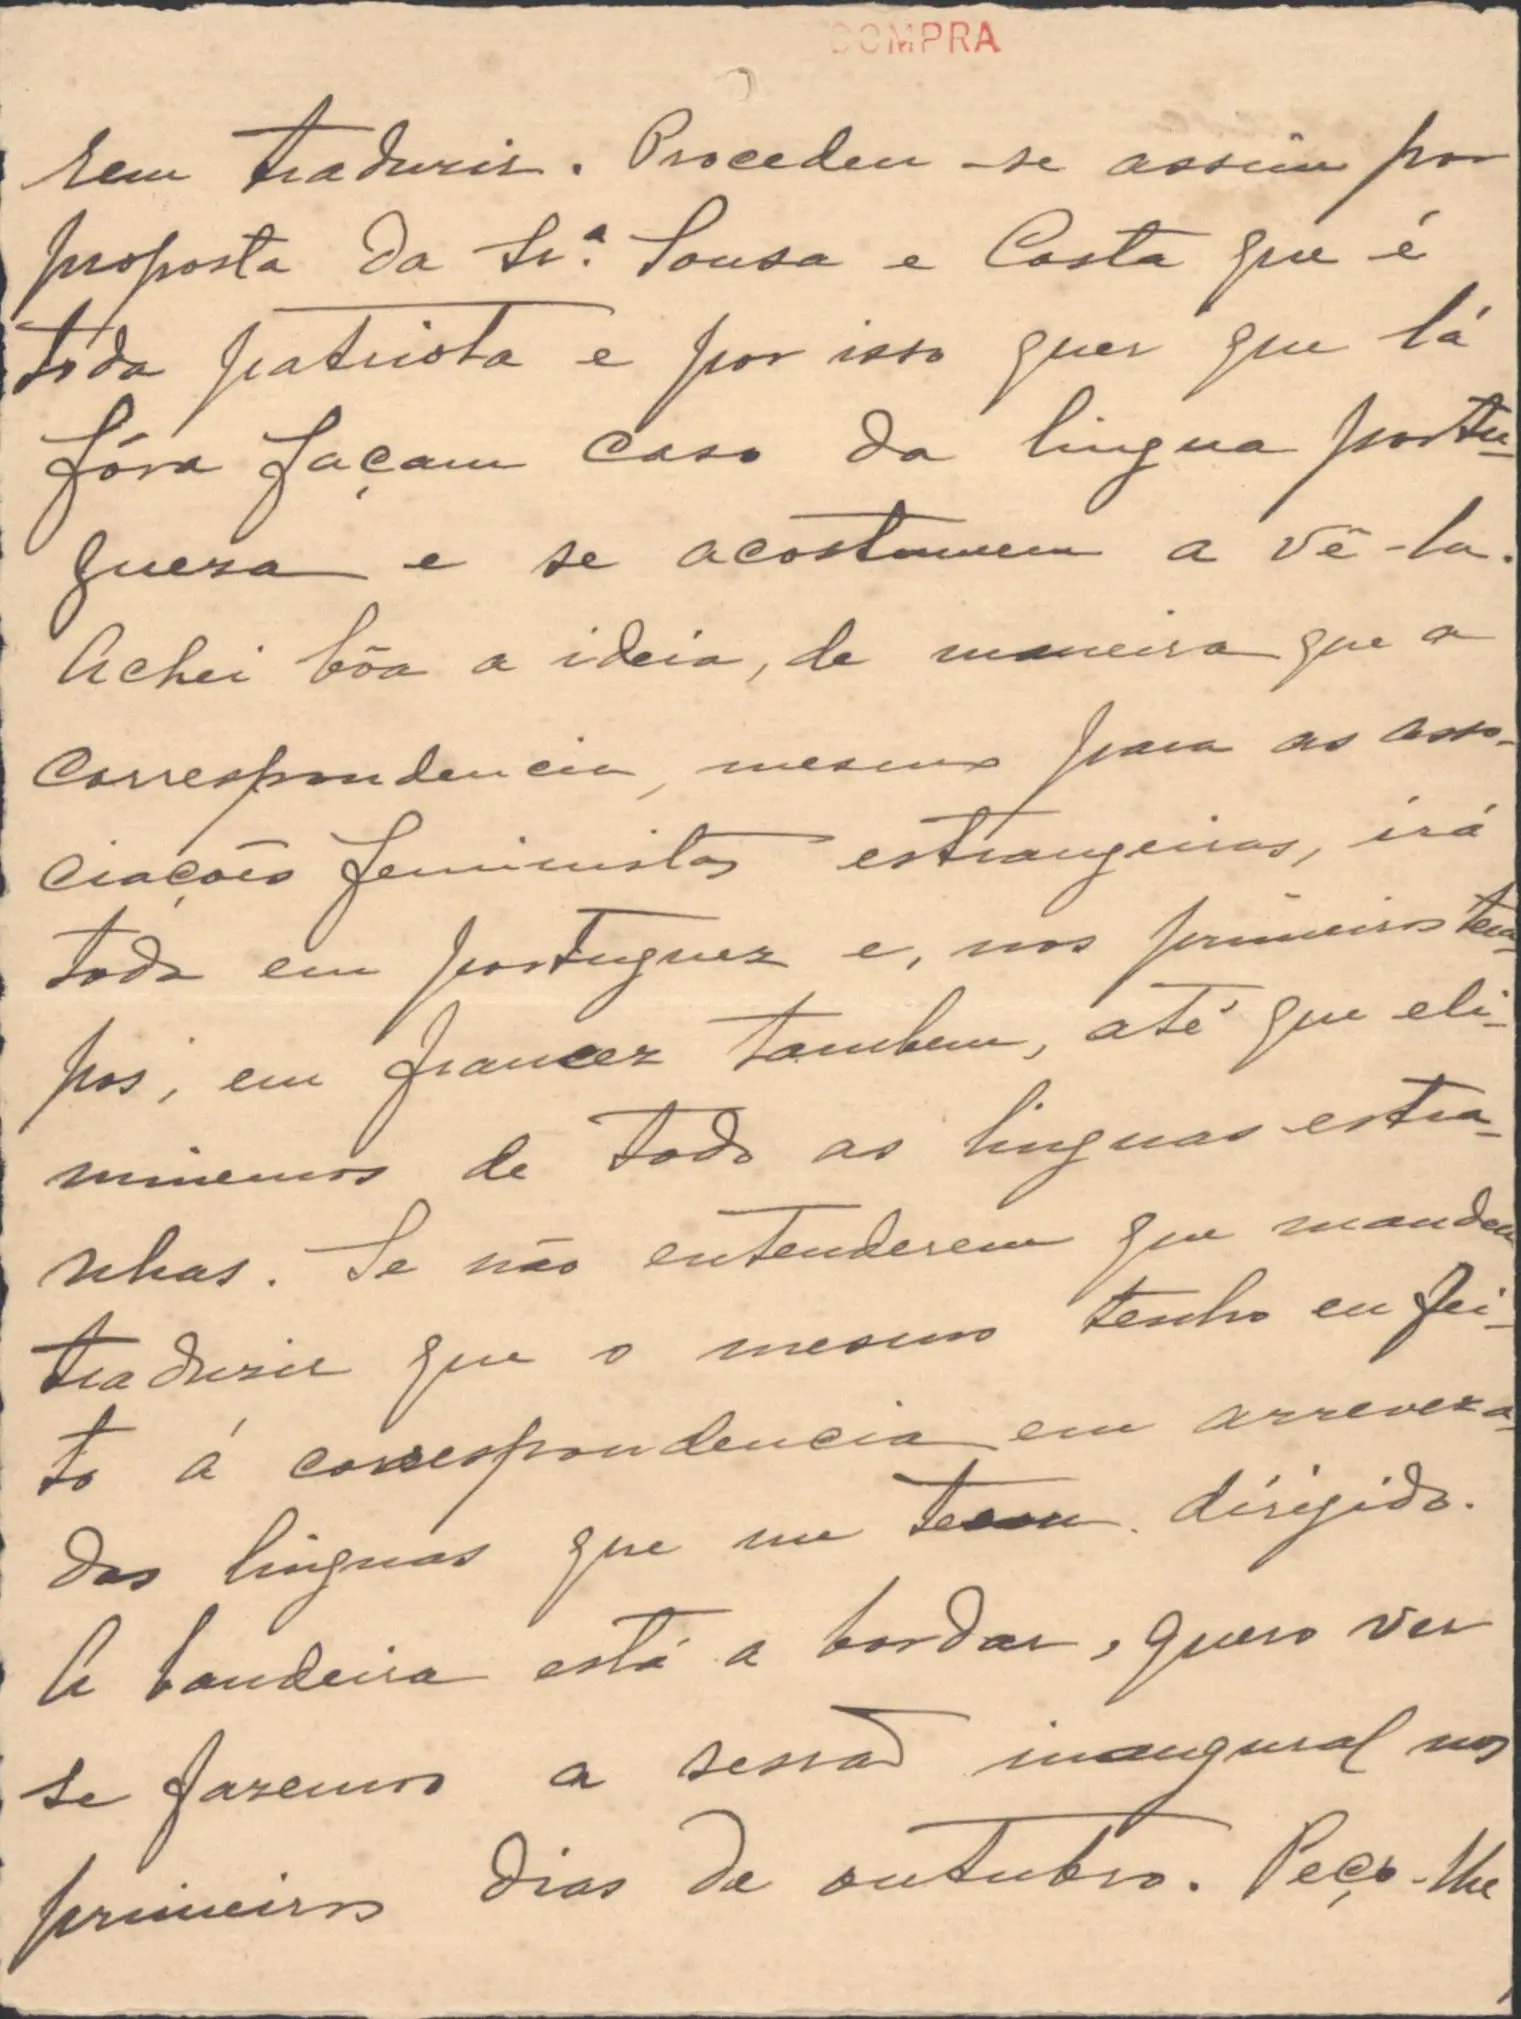 COMPRA
sem traduzir. Procedeu-se assim por
proposta da Sr.ª Sousa e Costa que é
tôda patriota e por isso quer que lá
fóra façam caso da lingua portu-
gueza e se acostumem a vê-la.
Achei bôa a ideia, de maneira que a
correspondencia, mesmo para as asso-
ciações feministas estrangeiras, irá
toda em portuguez e, nos primeiros tem-
pos, em francez tambem, até que eli-
minemos de todo as linguas estra-
nhas. Se não entenderem que mandem
traduzir que o mesmo tenho eu fei-
to á correspondencia em arreveza-
das linguas que me teem dirigido.
A bandeira está a bordar, quero ver
se fazemos a sessão inaugural nos
primeiros dias de outubro. Peço-lhe